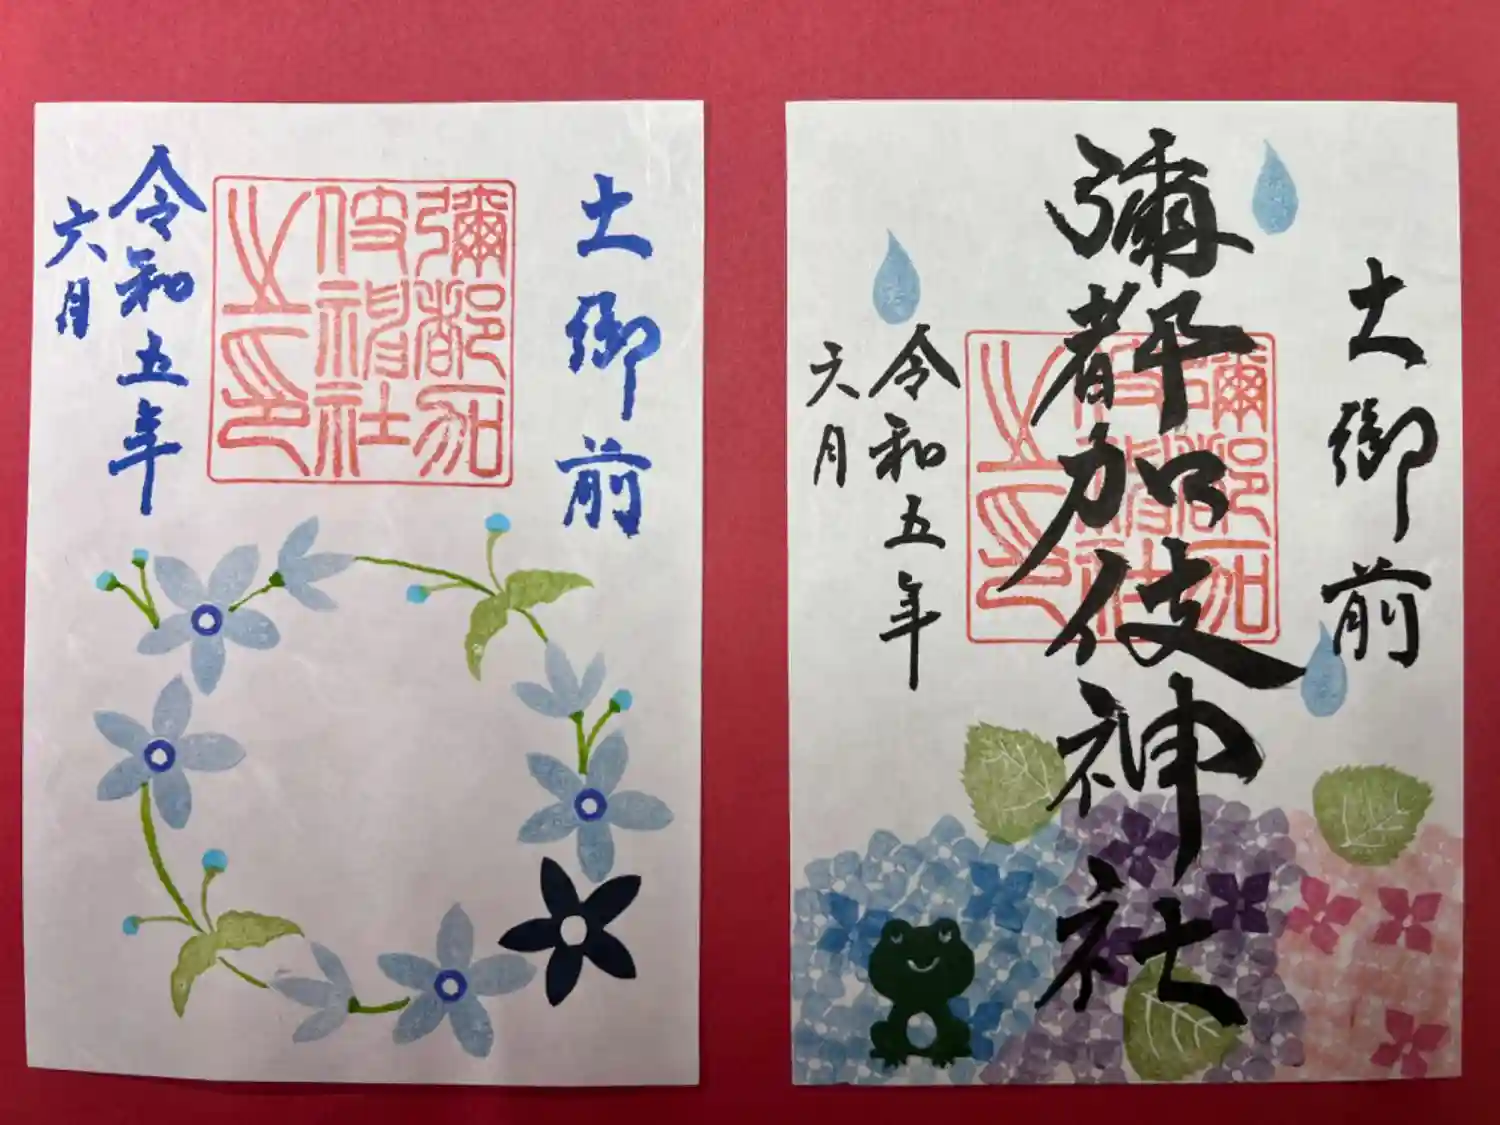 土御前
彌都加
伎神社
之印
令和五年
六月
土御前
彌都加伎神社
彌都加
伎神社
之印
令和五年
六月